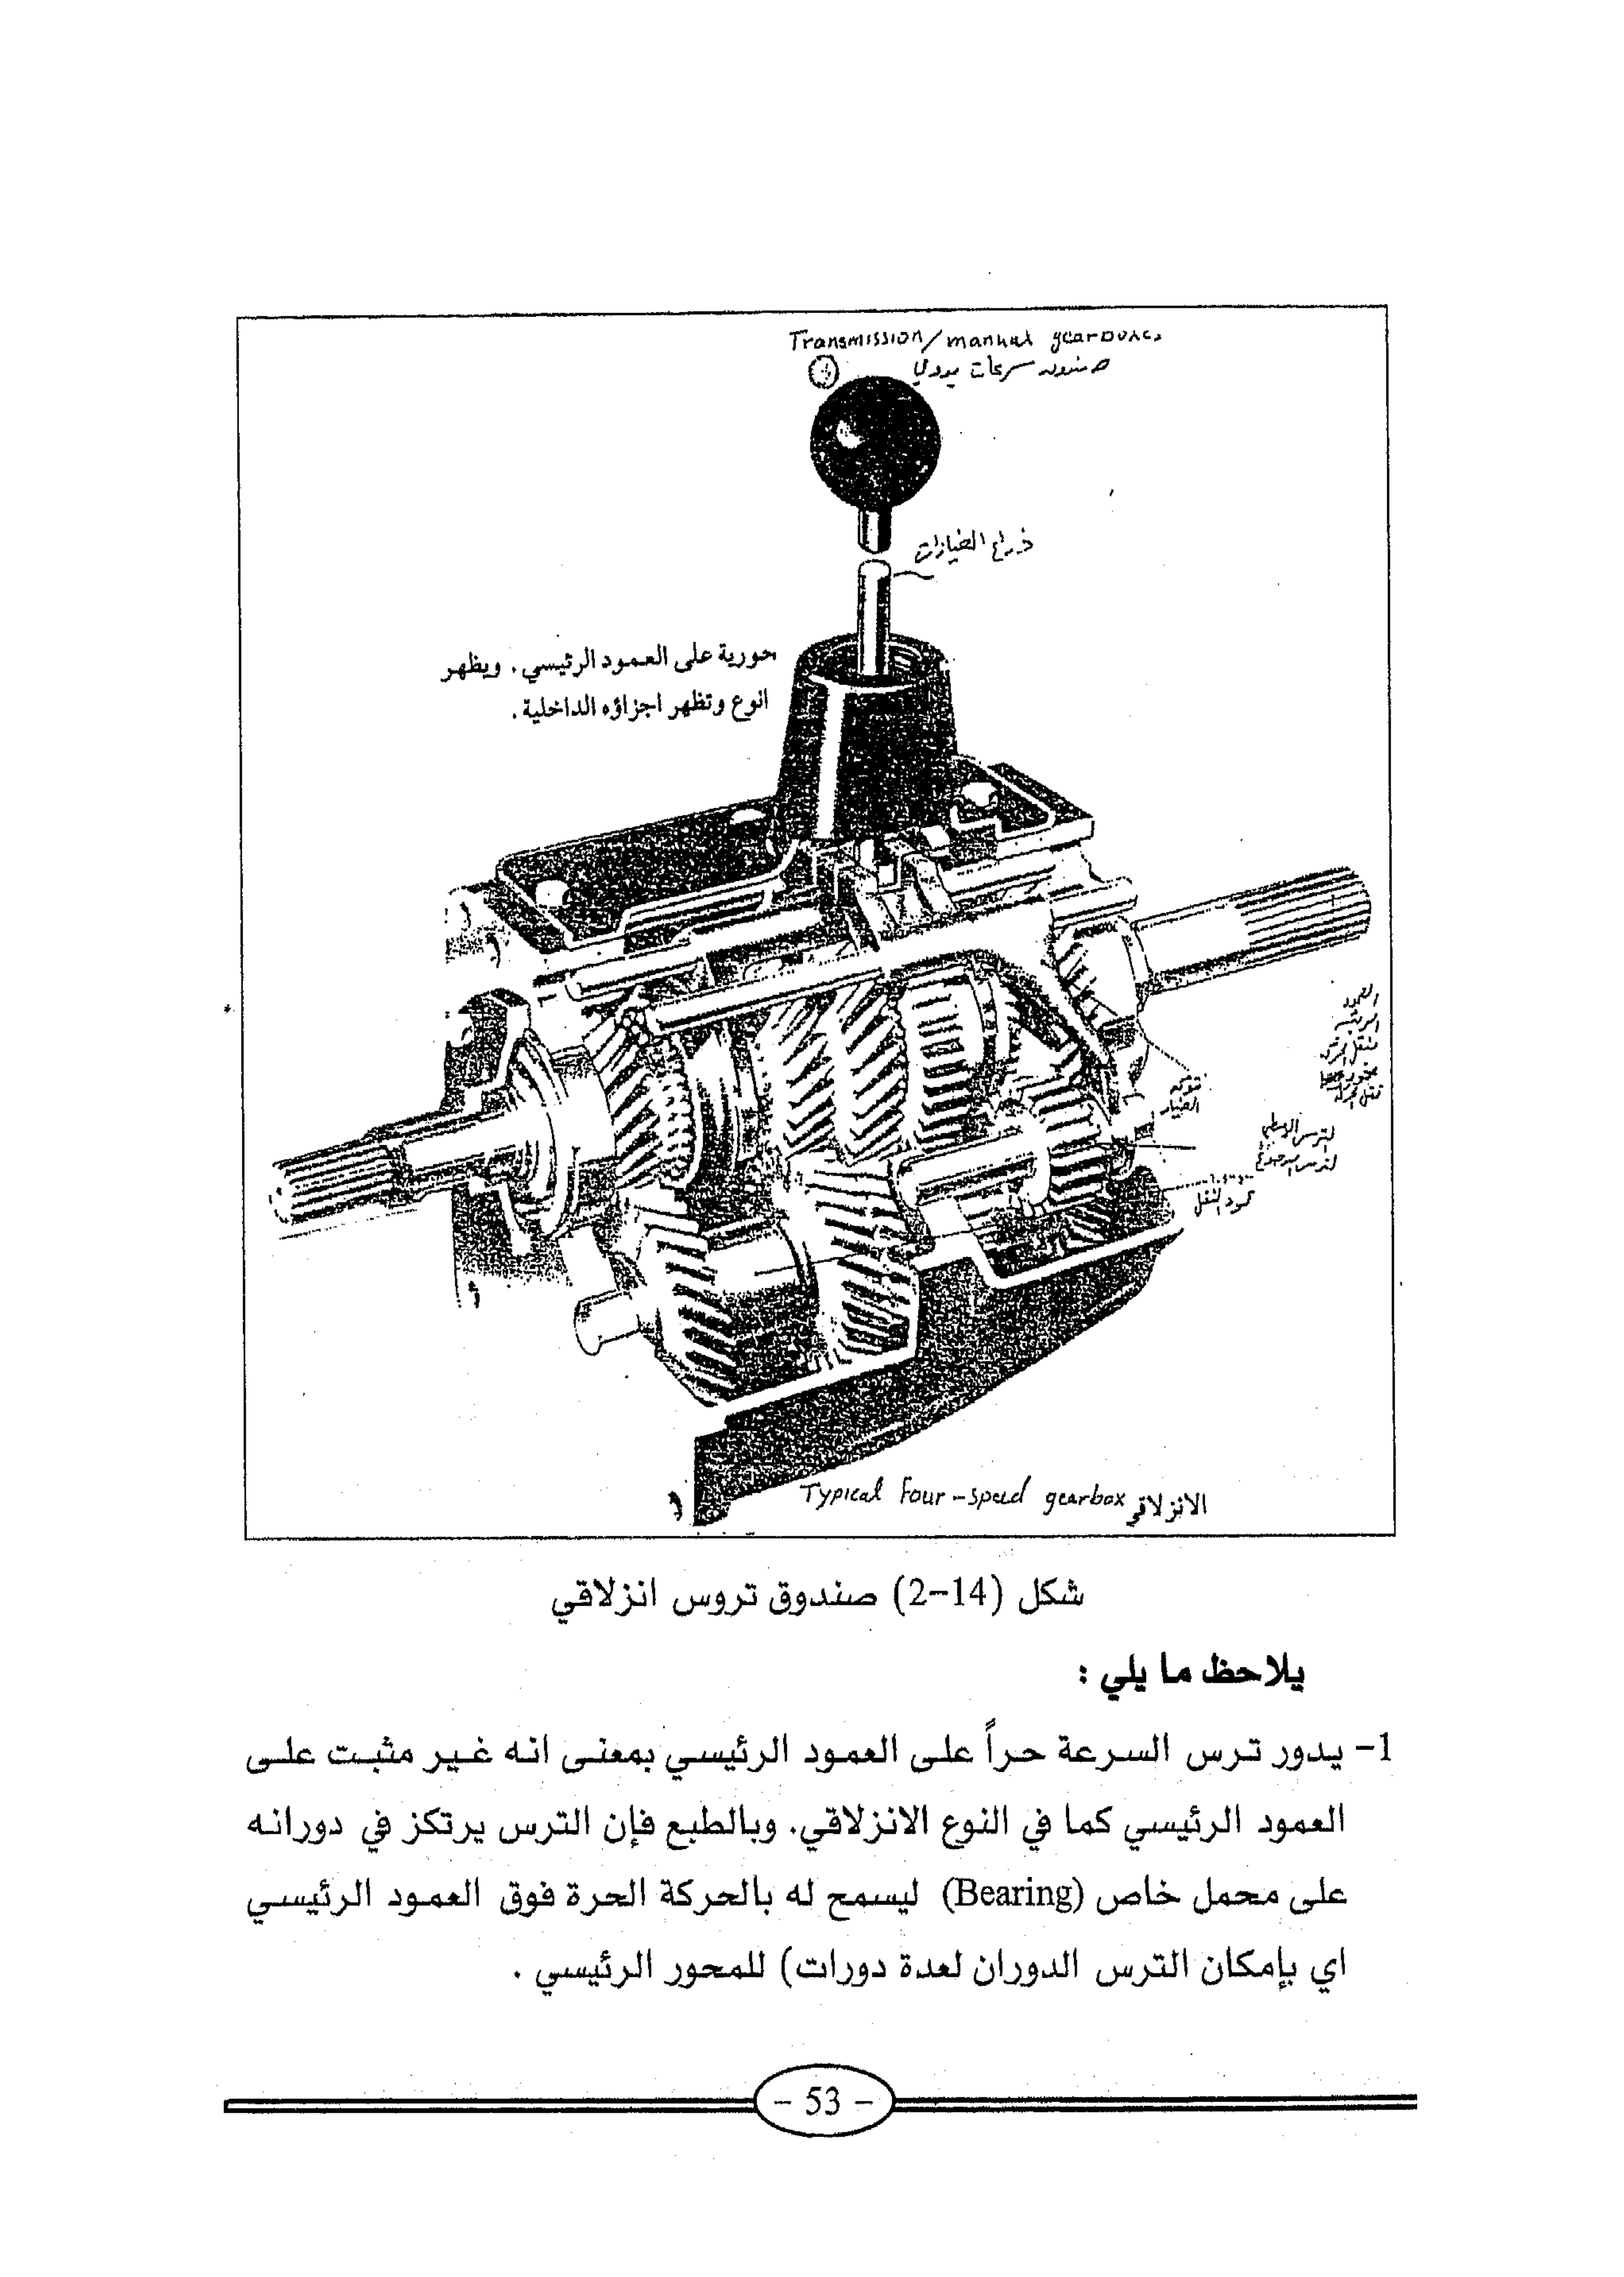 Transmission/manual gearboxes
صندوق سرعات يدوي
ذراع الغيارات
حورية على العمود الرئيسي. ويظهر
انوع وتظهر اجزاؤه الداخلية.
العمود
الغيار
عمود النقل
Typical Four-speed gearbox الانزلاقي
شكل (14-2) صندوق تروس انزلاقي
يلاحظ ما يلي :
1- يدور ترس السرعة حراً على العمود الرئيسي بمعنى انه غير مثبت على
العمود الرئيسي كما في النوع الانزلاقي. وبالطبع فإن الترس يرتكز في دورانه
على محمل خاص (Bearing) ليسمح له بالحركة الحرة فوق العمود الرئيسي
اي بإمكان الترس الدوران لعدة دورات) للمحور الرئيسي .
- 53 -